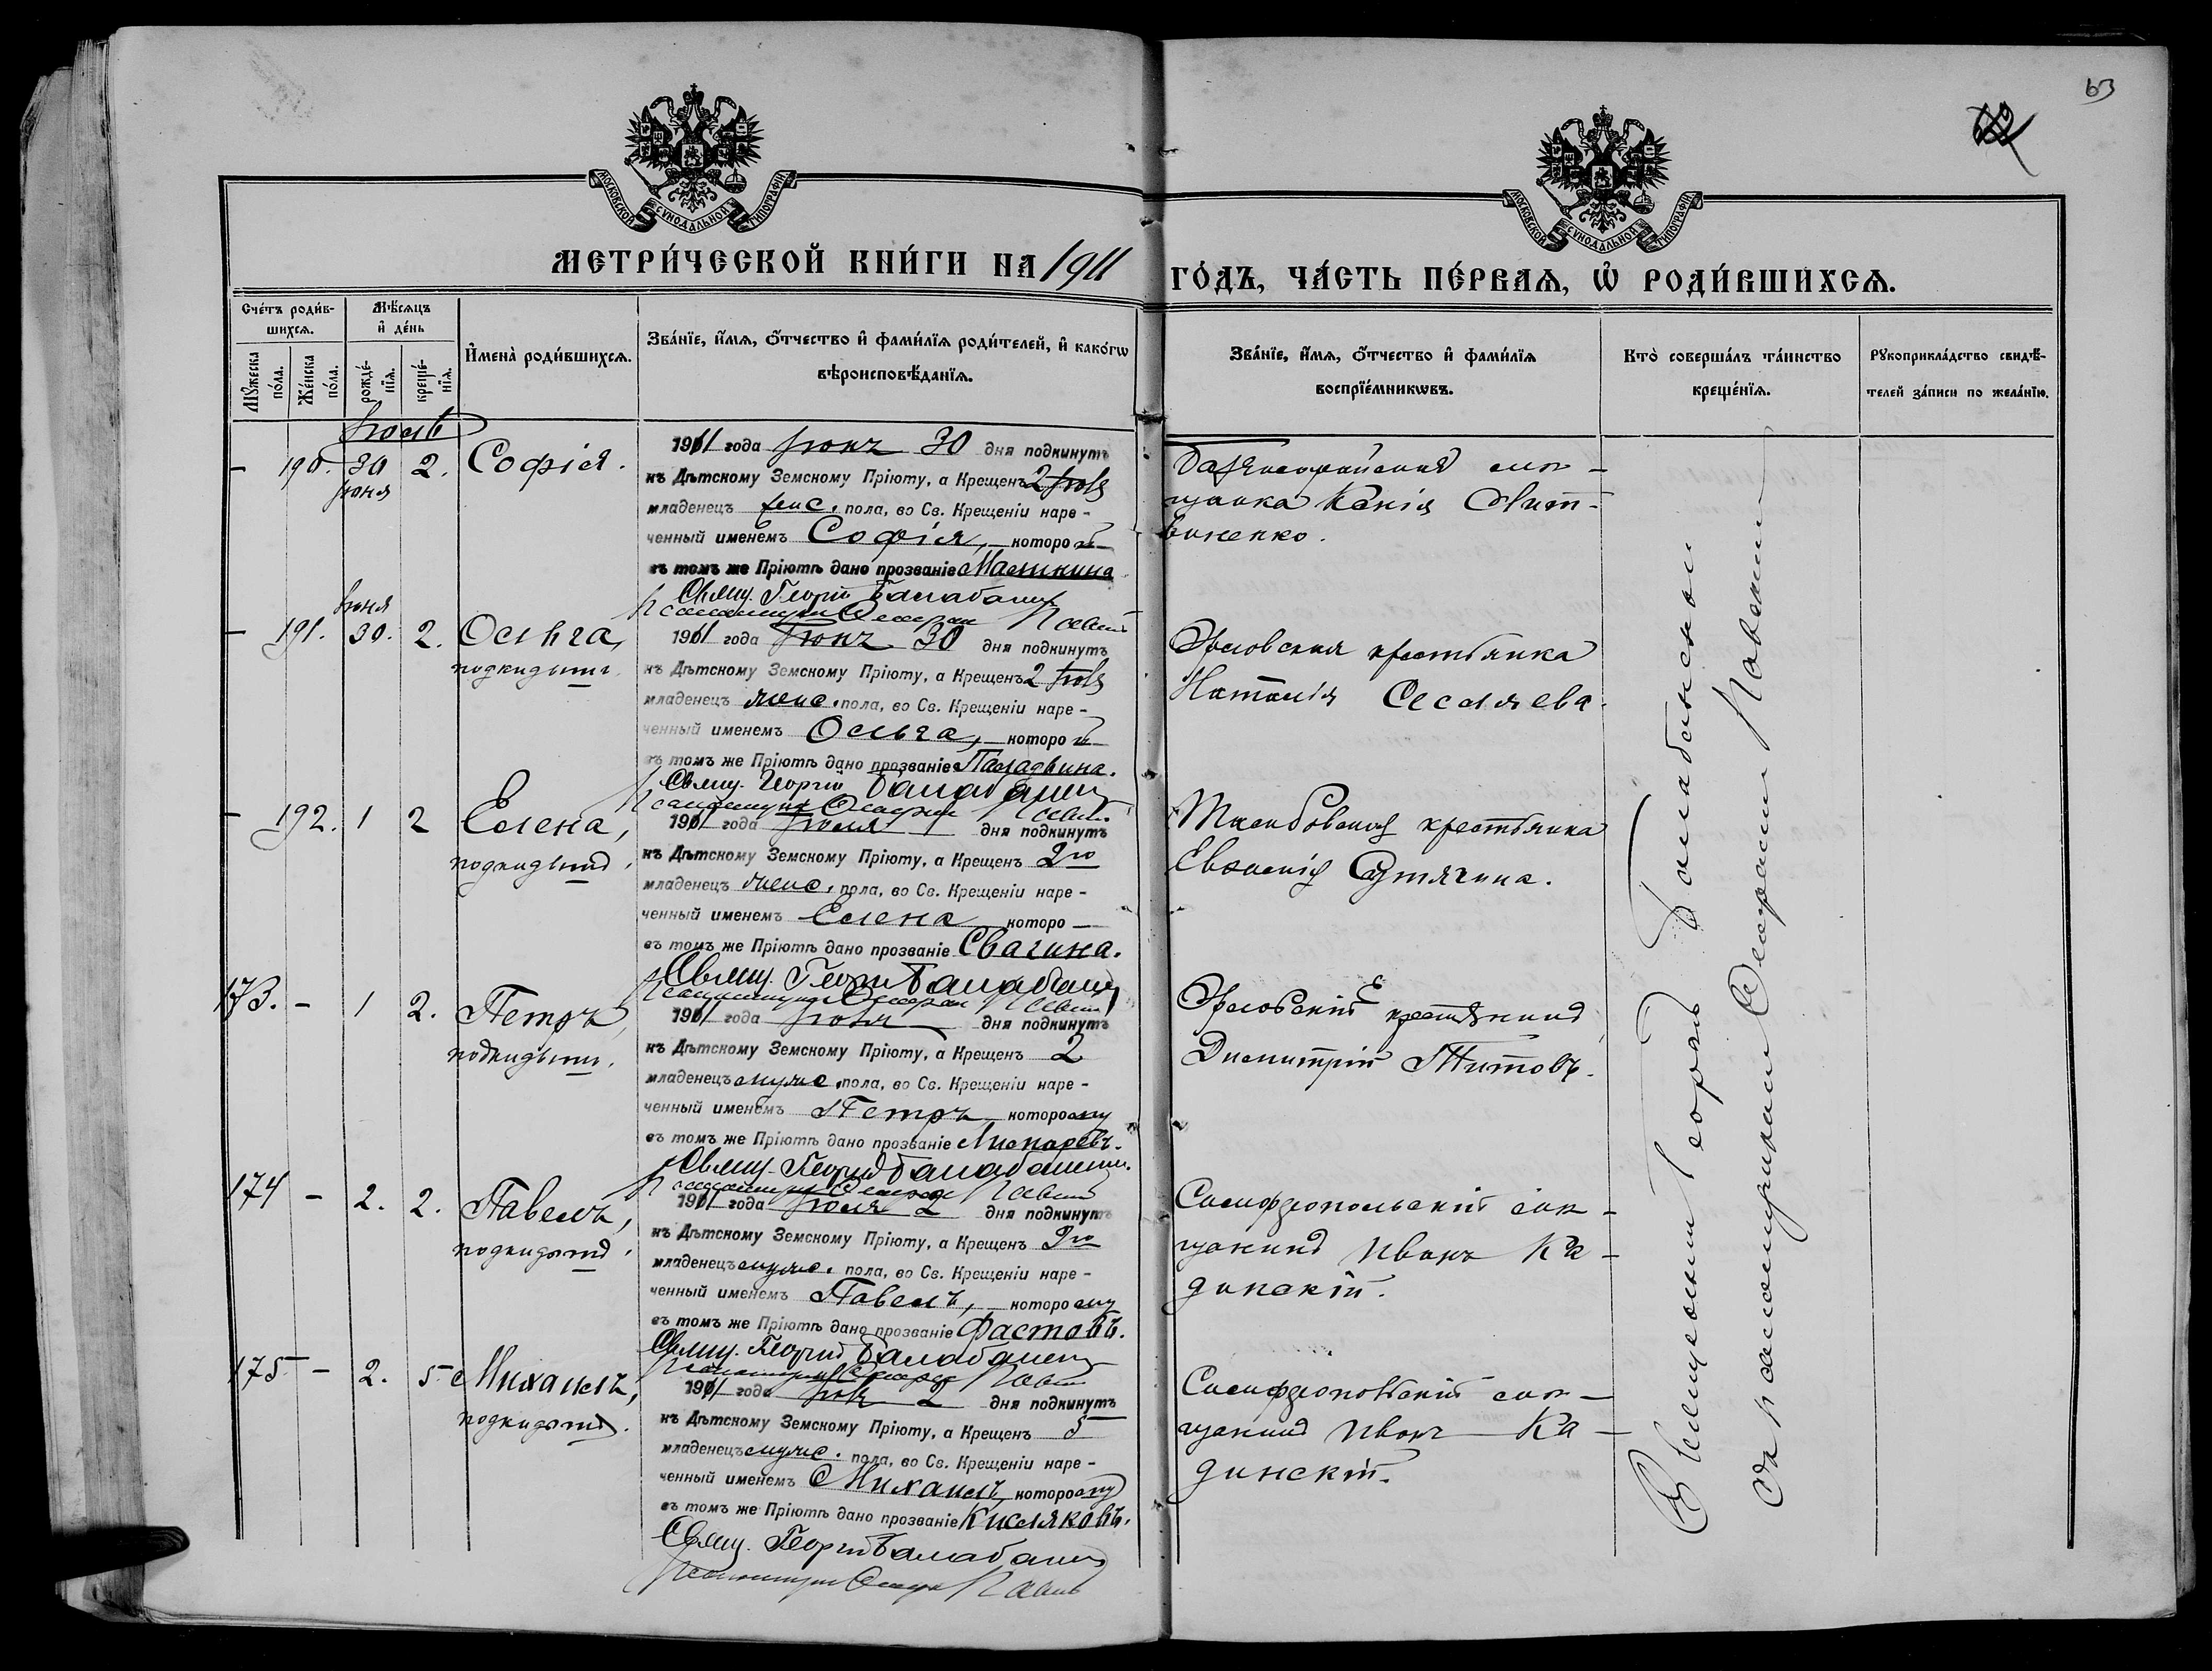 63
МОСКОВСКОЙ СУНОДАЛЬНОЙ ТИПОГРАФІИ
МОСКОВСКОЙ СУНОДАЛЬНОЙ ТИПОГРАФІИ
МЕТРИ́ЧЕСКОЙ КНИ́ГИ НА 1911 ГО́ДЪ, ЧА́СТЬ ПЕ́РВАѦ, Ѽ РОДИ́ВШИХСѦ.
Сче́тъ роди́в-
шихсѧ.
Мѣ́сѧцъ
и҆ де́нь
Мꙋ́жеска
по́ла.
Же́нска
по́ла.
рожде́-
нїѧ.
креще́-
нїѧ.
И҆мена̀ роди́вшихсѧ.
Зва́нїе, и҆́мѧ, ѻ҆́тчество и҆ фами́лїѧ роди́телей, и҆ како́гѡ
вѣроисповѣ́данїѧ.
Зва́нїе, и҆́мѧ, ѻ҆́тчество и҆ фами́лїѧ
воспрїе́мникѡвъ.
Кто̀ соверша́лъ та́инство
креще́нїѧ.
Рꙋкоприкла́дство свидѣ́-
телей за́писи по жела́нїю.
Іюль
- 190. 30 2. Софія.
іюня
1911 года Іюня 30 дня подкинутъ
къ Дѣтскому Земскому Пріюту, а Крещенъ 2 Іюля
младенецъ женс. пола, во Св. Крещеніи наре-
ченный именемъ Софія, которой
въ томъ же Пріютѣ дано прозваніе
Свящ. Георгій Балабаненко
Псаломщикъ
мѣ-
щанка Ксенія Лит-
виненко.
іюня
- 191. 30. 2. Ольга,
подкидышъ.
1911 года Іюня 30 дня подкинутъ
къ Дѣтскому Земскому Пріюту, а Крещенъ 2 Іюля
младенецъ женс. пола, во Св. Крещеніи наре-
ченный именемъ Ольга, которой
въ томъ же Пріютѣ дано прозваніе
Свящ. Георгій Балабаненко
Псаломщикъ
Орловская крестьянка
Наталія Сесляева.
- 192. 1 2 Елена,
подкидышъ.
1911 года Іюля дня подкинутъ
къ Дѣтскому Земскому Пріюту, а Крещенъ 2го
младенецъ женс. пола, во Св. Крещеніи наре-
ченный именемъ Елена которо
въ томъ же Пріютѣ дано прозваніе Свагина.
Свящ. Георгій Балабаненко
Псаломщикъ
крестьянка
Евгенія Сутягина.
173. - 1 2. Петръ,
подкидышъ.
1911 года Іюля дня подкинутъ
къ Дѣтскому Земскому Пріюту, а Крещенъ 2
младенецъ мужс. пола, во Св. Крещеніи наре-
ченный именемъ Петръ которому
въ томъ же Пріютѣ дано прозваніе
Свящ. Георгій Балабаненко
Псаломщикъ
Орловскій крестьянинъ
Димитрій Титовъ.
174 - 2. 2. Павелъ,
подкидышъ.
1911 года Іюля 2 дня подкинутъ
къ Дѣтскому Земскому Пріюту, а Крещенъ 2го
младенецъ мужс. пола, во Св. Крещеніи наре-
ченный именемъ Павелъ, которому
въ томъ же Пріютѣ дано прозваніе Фастовъ.
Свящ. Георгій Балабаненко
Псаломщикъ
Симферопольскій мѣ-
щанинъ Иванъ Ка-
динскій.
175 - 2. 5 Михаилъ,
подкидышъ.
1911 года Іюля 2 дня подкинутъ
къ Дѣтскому Земскому Пріюту, а Крещенъ 5
младенецъ мужс. пола, во Св. Крещеніи наре-
ченный именемъ Михаилъ, которому
въ томъ же Пріютѣ дано прозваніе Кисляковъ.
Свящ. Георгій Балабаненко
Псаломщикъ
Симферопольскій мѣ-
щанинъ Иванъ Ка-
динскій.
Священникъ Георгій Балабаненко